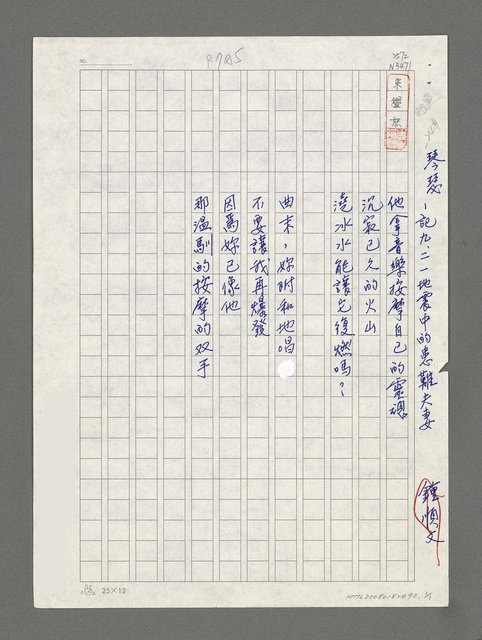 R7A5
N3471
NO.
琴瑟－記九、二一地震中的患難夫妻
鍾順文
他拿音樂按摩自己的靈魂
沉寂已久的火山
澆冰水能讓它復燃嗎？
曲末，妳附和地唱
不要讓我再爆發
因爲妳已像他
那溫馴的按摩的双手
25×12